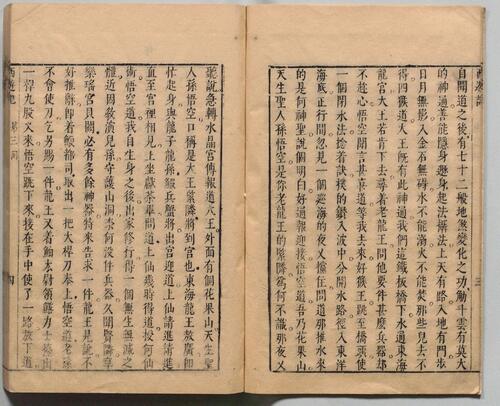 西遊記
三
自聞道之後有七十二般地煞變化之功觔斗雲有莫大
的神通善能隱身遯身起法攝法上天有路入地有門步
日月無影入金石無礙水不能溺火不能焚那些兒去不
得四猴道大王既有此神通我們這鐵板橋下水通東海
龍宮大王若肯下去尋着老龍王問他要件甚麼兵器却
不趁心悟空聞言甚喜道等我去來好猴王跳至橋頭使
一個閉水法捻着訣撲的鑽入波中分開水路徑入東洋
海底正行間忽見一個巡海的夜叉攩住問道那推水來
的是何神聖說個明白好通報迎接悟空道吾乃花果山
天生聖人孫悟空是你老龍王的緊隣為何不識那夜叉
聽說急轉水晶宮傳報道大王外面有個花果山天生聖
人孫悟空口稱是大王緊隣將到宮也東海龍王敖廣即
忙起身與龍子龍孫鰕兵蟹將出宮迎道上仙請進請進
直至宮裡相見上坐獻茶畢問道上仙幾時得道授何仙
術悟空道我自生身之後出家修行得一個無生無滅之
體近因教演兒孫守護山洞奈何沒件兵器久聞賢隣享
樂瑤宮貝闕必有多餘神器特來告求一件龍王見說不
好推辭即着鱖都司取出一把大桿刀奉上悟空道老孫
不會使刀乞另賜一件龍王又着鮊太尉領鱔力士擡出
一桿九股叉來悟空跳下來接在手中使了一路放下道
西遊記
第三回
四